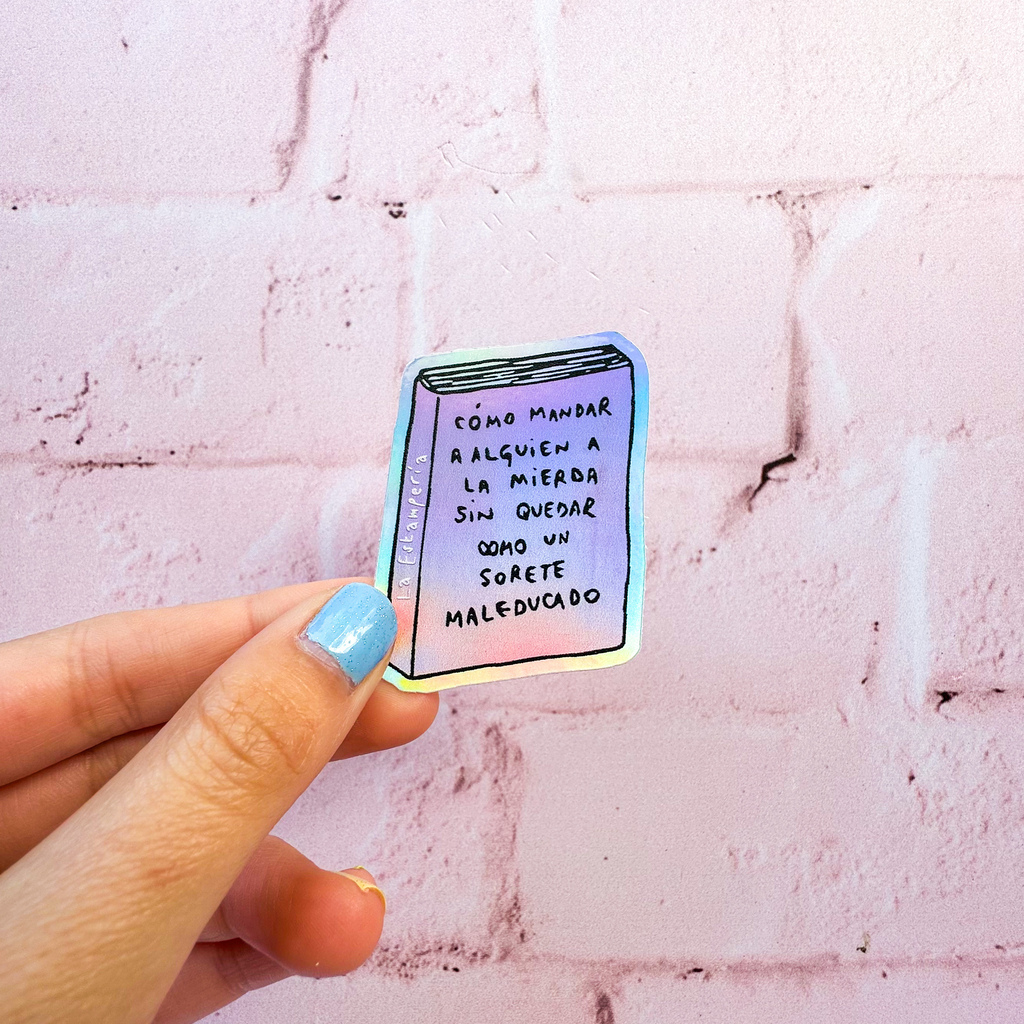 CÓMO MANDAR
A ALGUIEN A
LA MIERDA
SIN QUEDAR
COMO UN
SORETE
MALEDUCADO
La Estampería